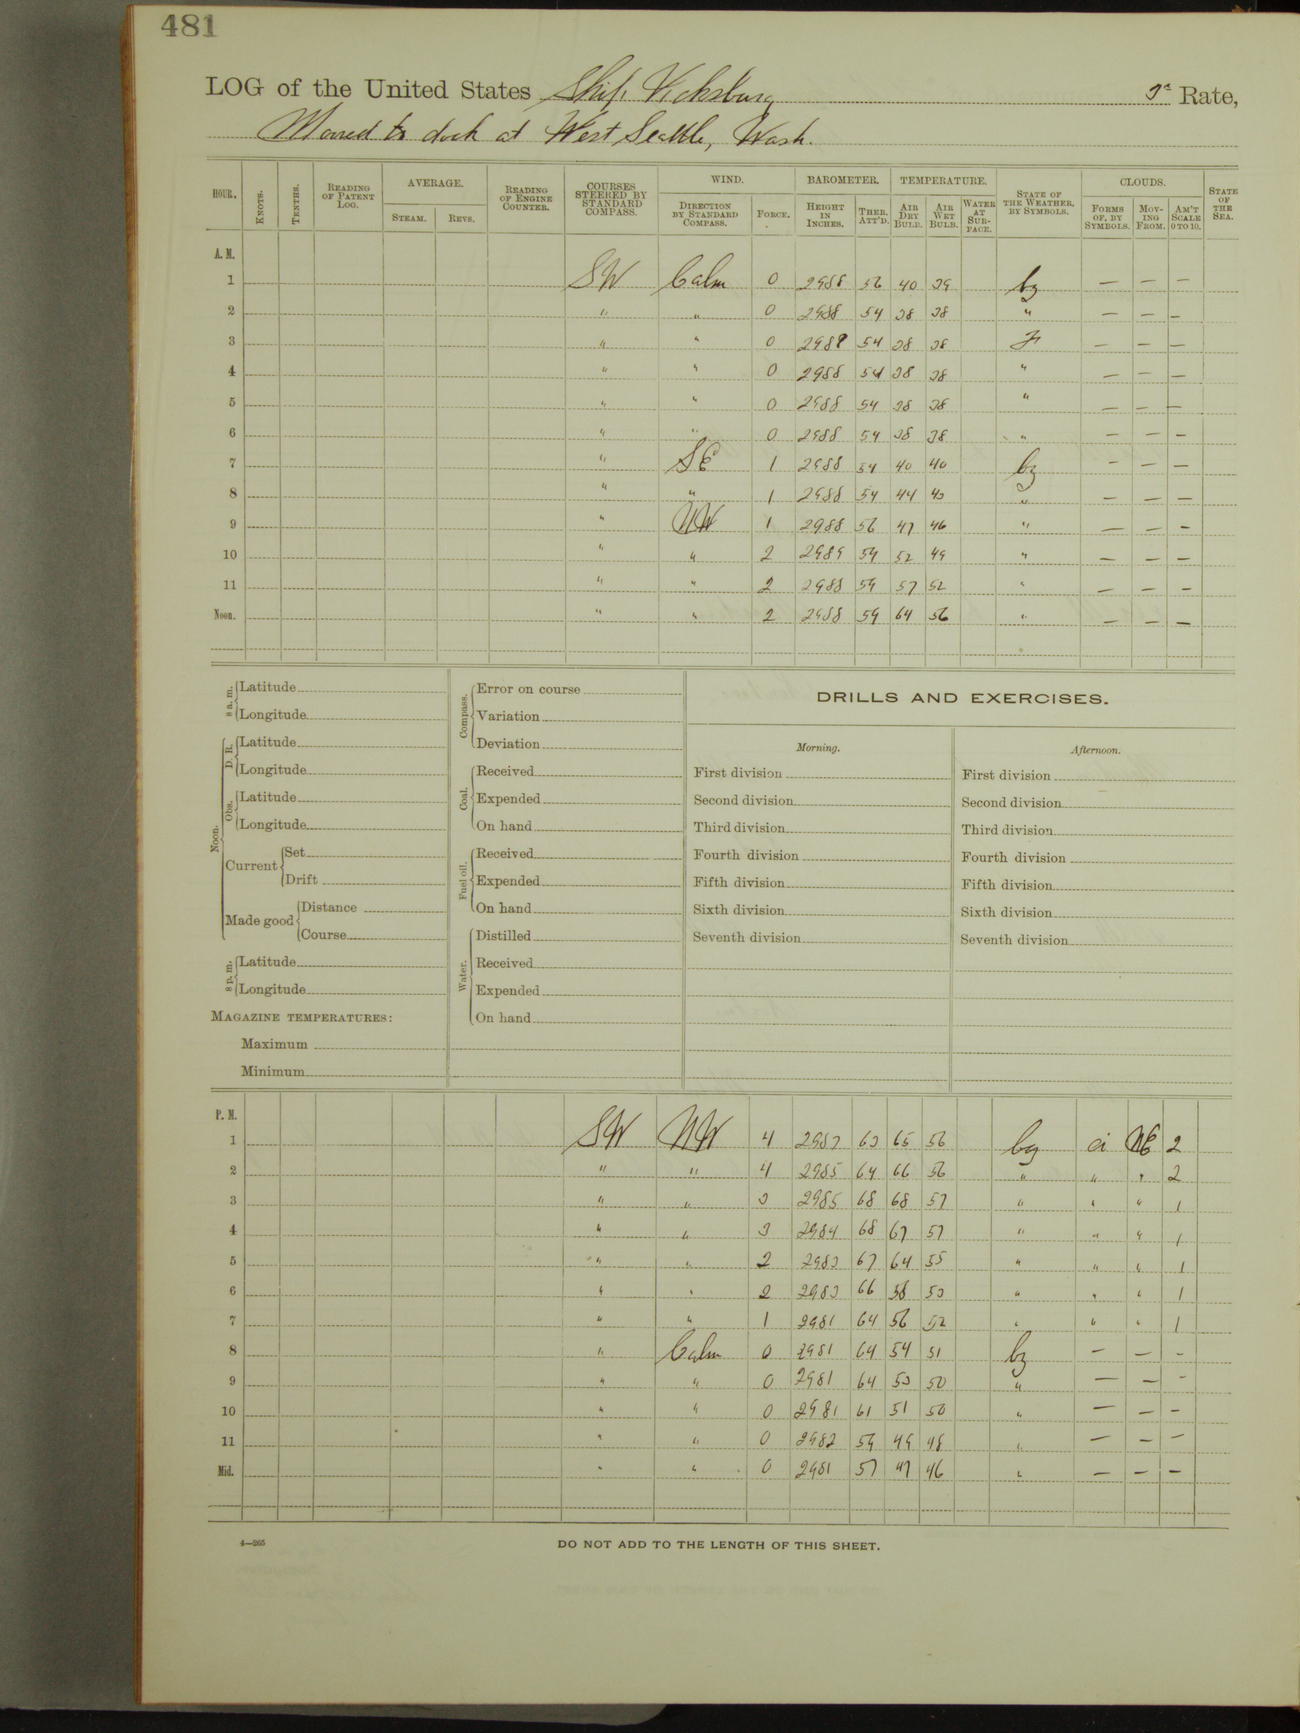 481
LOG of the United States Ship Vicksburg 3d Rate,
Moored to dock at West Seattle, Wash.
HOUR. KNOTS. TENTHS. READING OF PATENT LOG. AVERAGE. STEAM. REVS. READING OF ENGINE COUNTER. COURSES STEERED BY STANDARD COMPASS. WIND. DIRECTION BY STANDARD COMPASS. FORCE. BAROMETER. HEIGHT IN INCHES. THER. ATT'D. TEMPERATURE. AIR DRY BULB. AIR WET BULB. WATER AT SURFACE. STATE OF THE WEATHER, BY SYMBOLS. CLOUDS. FORMS OF, BY SYMBOLS. MOVING FROM. AM'T SCALE 0 TO 10. STATE OF THE SEA.
A. M.
1 SW Calm 0 2988 56 40 39 bz — — —
2 " " 0 2988 54 38 38 " — — —
3 " " 0 2988 54 38 38 F — — —
4 " " 0 2988 54 38 38 " — — —
5 " " 0 2988 54 38 38 " — — —
6 " " 0 2988 54 38 38 " — — —
7 " SE 1 2988 54 40 40 bz — — —
8 " " 1 2988 54 44 43 " — — —
9 " NW 1 2988 56 47 46 " — — —
10 " " 2 2989 59 52 49 " — — —
11 " " 2 2988 59 57 52 " — — —
Noon. " " 2 2988 59 64 56 " — — —
8 a.m. Latitude
Longitude
Noon. D. R. Latitude
Longitude
Obs. Latitude
Longitude
Current Set
Drift
Made good Distance
Course
8 p.m. Latitude
Longitude
MAGAZINE TEMPERATURES:
Maximum
Minimum
Compass. Error on course
Variation
Deviation
Coal. Received
Expended
On hand
Fuel oil. Received
Expended
On hand
Water. Distilled
Received
Expended
On hand
DRILLS AND EXERCISES.
Morning.
First division
Second division
Third division
Fourth division
Fifth division
Sixth division
Seventh division
Afternoon.
First division
Second division
Third division
Fourth division
Fifth division
Sixth division
Seventh division
P. M.
1 SW NW 4 2987 63 65 56 bz ci NE 2
2 " " 4 2985 64 66 56 " " " 2
3 " " 3 2985 68 68 57 " " " 1
4 " " 3 2984 68 67 57 " " " 1
5 " " 2 2983 67 64 55 " " " 1
6 " " 2 2983 66 58 53 " " " 1
7 " " 1 2981 64 56 52 " " " 1
8 " Calm 0 2981 64 54 51 bz — — —
9 " " 0 2981 64 53 50 " — — —
10 " " 0 2981 61 51 50 " — — —
11 " " 0 2982 59 49 48 " — — —
Mid. " " 0 2981 57 47 46 " — — —
4—265
DO NOT ADD TO THE LENGTH OF THIS SHEET.